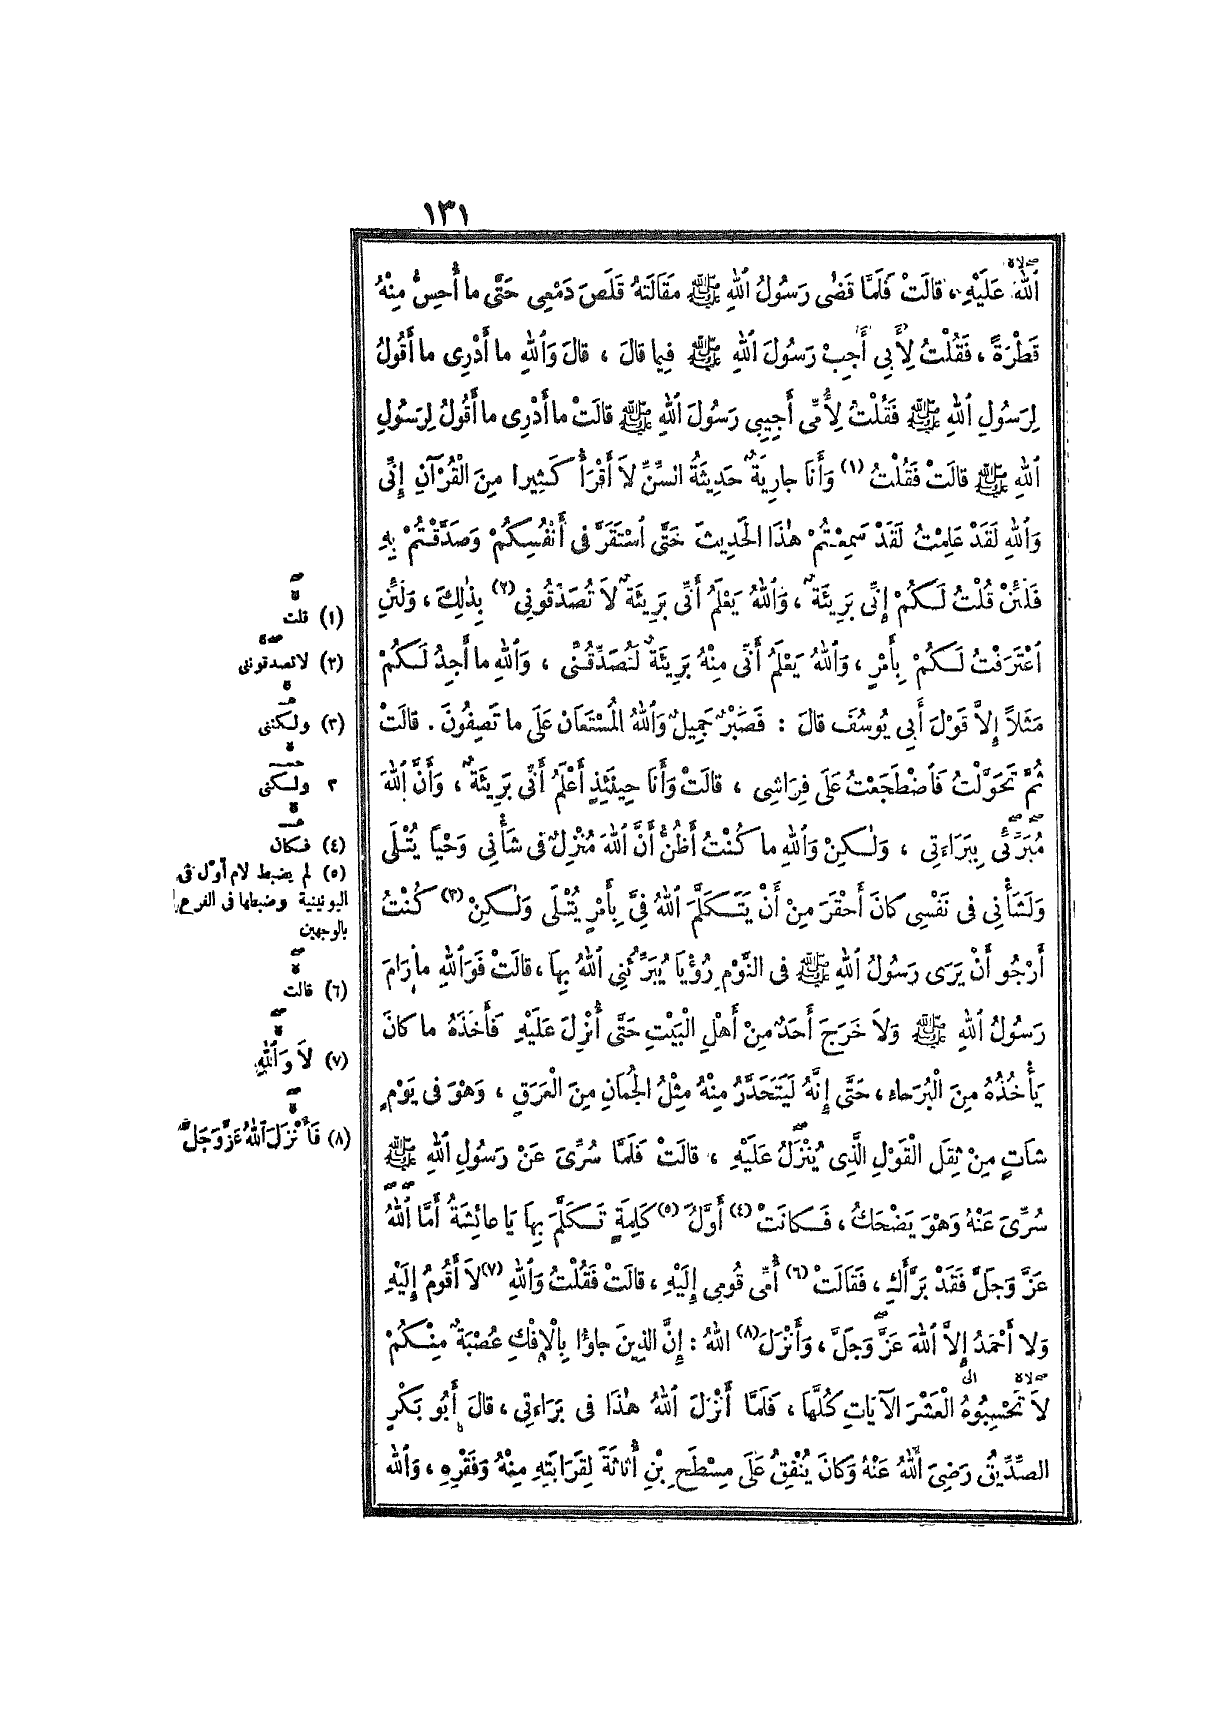 ١٣١
اللهُ عَلَيْهِ ، قالَتْ فَلَمَّا قَضٰى رَسُولُ اللهِ ﷺ مَقَالَتَهُ قَلَصَ دَمْعِى حَتَّى ما أُحِسُّ مِنْهُ
قَطْرَةً ، فَقُلْتُ لِأَبِي أَجِبْ رَسُولَ اللهِ ﷺ فِيما قالَ ، قالَ وَاللهِ ما أَدْرِى ما أَقُولُ
لِرَسُولِ اللهِ ﷺ فَقُلْتُ لِأُمِّى أَجِيبِي رَسُولَ اللهِ ﷺ قالَتْ ما أَدْرِى ما أَقُولُ لِرَسُولِ
اللهِ ﷺ قالَتْ فَقُلْتُ (١) وَأَنَا جارِيَةٌ حَدِيثَةُ السِّنِّ لاَ أَقْرَأُ كَثِيرا مِنَ الْقُرْآنِ إِنِّى
وَاللهِ لَقَدْ عَلِمْتُ لَقَدْ سَمِعْتُمْ هٰذَا الْحَدِيثَ حَتَّى اسْتَقَرَّ فى أَنْفُسِكُمْ وَصَدَّقْتُمْ بِهِ
فَلَئِنْ قُلْتُ لَكُمْ إِنِّى بَرِيئَةٌ ، وَاللهُ يَعْلَمُ أَنِّى بَرِيئَةٌ لاَ تُصَدِّقُونِي (٢) بِذٰلِكَ ، وَلَئِنِ
اعْتَرَفْتُ لَكُمْ بِأَمْرٍ ، وَاللهُ يَعْلَمُ أَنِّى مِنْهُ بَرِيئَةٌ لَتُصَدِّقُنِّى ، وَاللهِ ما أَجِدُ لَكُمْ
مَثَلاً إِلاَّ قَوْلَ أَبِي يُوسُفَ قالَ : فَصَبْرٌ جَمِيلٌ وَاللهُ الْمُسْتَعَانُ عَلَى ما تَصِفُونَ . قالَتْ
ثُمَّ تَحَوَّلْتُ فَاضْطَجَعْتُ عَلَى فِرَاشِى ، قالَتْ وَأَنَا حِينَئِذٍ أَعْلَمُ أَنِّى بَرِيئَةٌ ، وَأَنَّ اللهَ
مُبَرِّئُى بِبَرَاءَتِى ، وَلٰكِنْ وَاللهِ ما كُنْتُ أَظُنُّ أَنَّ اللهَ مُنْزِلٌ فى شَأْنِي وَحْياً يُتْلَى
وَلَشَأْنِي فى نَفْسِى كانَ أَحْقَرَ مِنْ أَنْ يَتَكَلَّمَ اللهُ فِىَّ بِأَمْرٍ يُتْلَى وَلٰكِنْ (٣) كُنْتُ
أَرْجُو أَنْ يَرَى رَسُولُ اللهِ ﷺ فى النَّوْمِ رُؤْيَا يُبَرِّئُنِي اللهُ بِها ، قالَتْ فَوَاللهِ ما رَامَ
رَسُولُ اللهِ ﷺ وَلاَ خَرَجَ أَحَدٌ مِنْ أَهْلِ الْبَيْتِ حَتَّى أُنْزِلَ عَلَيْهِ فَأَخَذَهُ ما كانَ
يَأْخُذُهُ مِنَ الْبُرَحاءِ ، حَتَّى إِنَّهُ لَيَتَحَدَّرُ مِنْهُ مِثْلُ الْجُمَانِ مِنَ الْعَرَقِ ، وَهْوَ فى يَوْمٍ
شَاتٍ مِنْ ثِقَلِ الْقَوْلِ الَّذِى يُنْزَلُ عَلَيْهِ ، قالَتْ فَلَمَّا سُرِّىَ عَنْ رَسُولِ اللهِ ﷺ
سُرِّىَ عَنْهُ وَهْوَ يَضْحَكُ ، فَكانَتْ (٤) أَوَّلُ (٥) كَلِمَةٍ تَكَلَّمَ بِها يَا عائِشَةُ أَمَّا اللهُ
عَزَّ وَجَلَّ فَقَدْ بَرَّأَكِ ، فَقَالَتْ (٦) أُمِّى قُومِى إِلَيْهِ ، قالَتْ فَقُلْتُ وَاللهِ (٧) لاَ أَقُومُ إِلَيْهِ
وَلا أَحْمَدُ إِلاَّ اللهَ عَزَّ وَجَلَّ ، وَأَنْزَلَ (٨) اللهُ : إِنَّ الَّذِينَ جاؤُا بِالْإِفْكِ عُصْبَةٌ مِنْكُمْ
لاَ تَحْسِبُوهُ الْعَشْرَ الآيَاتِ كُلَّها ، فَلَمَّا أَنْزَلَ اللهُ هٰذَا فى بَرَاءَتِى ، قالَ أَبُو بَكْرٍ
الصِّدِّيقُ رَضِىَ اللهُ عَنْهُ وَكانَ يُنْفِقُ عَلَى مِسْطَحِ بْنِ أُثاثَةَ لِقَرَابَتِهِ مِنْهُ وَفَقْرِهِ ، وَاللهِ
(١) قلت
(٢) لاتصدقونى
(٣) ولكننى
٣ ولكنى
(٤) فكان
(٥) لم يضبط لام أول فى
اليونينية وضبطها فى الفرع
بالوجهين
(٦) قالت
(٧) لاَ وَاللهِ
(٨) فَأَنْزَلَ اللهُ عَزَّ وَجَلَّ